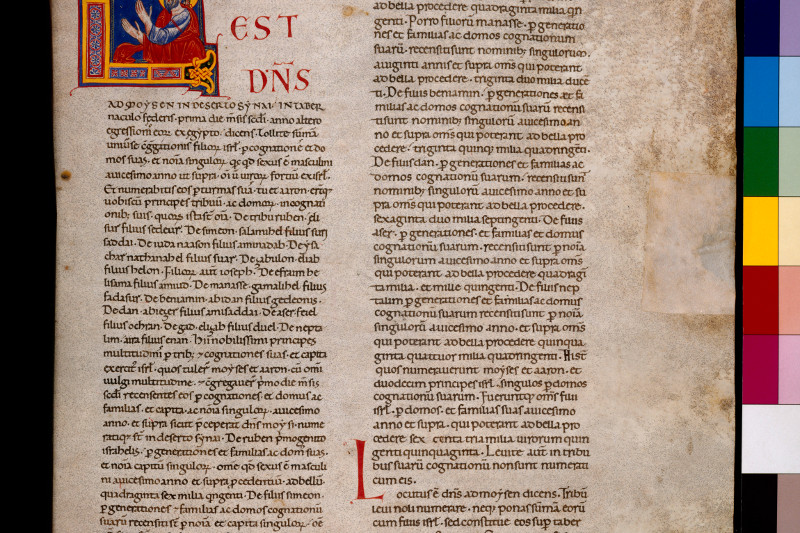 EST
DÑS
AD MOYSEN IN DESERTO SYNAI IN TABER
naculo federis. prima die m̄sis sc̄di. anno altero
egressionis eor̄ ex egypto. dicens. Tollite sumā
filior̄ isrl̄. p cognationes et do
mos suas. et noīa singulor̄. qc qd sexus ē masculini
a vicesimo anno et supra. oīū uiror̄ fortiū ex isrl̄.
Et numerabitis eos p turmas suas. tu et aaron. erūtq;
uobiscū principes tribuū. ac domor̄. in cognati
onib; suis. quor̄ ista sr̄ noīa. De tribu ruben. eli
sur filius sedeur. De simeon. salamihel filius suri
saddai. De iuda naason filius aminadab. De ysa
char nathanahel filius suar. De zabulon. eliab
filius helon. Filior̄ aut̄ ioseph. De efraim he
lisama filius amiud. De manasse. gamalihel filius
fadasur. De beniamin. abidan filius gedeonis.
De dan. abiezer filius amisaddai. De aser. feiel
filius ochran. De gad. eliasab filius duel. De nepta
lim. aira filius enan. Hii nobilissimi principes
multitudinis p trib; & cognationes suas. et capita
exercit; isrl̄. quos tuler̄ moyses et aaron. cū omi
uulgi multitudine. & cgregauer̄ primo die m̄sis
sc̄di. recensentes eos p cognationes. et domus ac
familias. et capita. ac noīa singulor̄. a vicesimo
anno. et supra sicut p̄ceperat dn̄s moysi. nume
ratiq; st̄ in deserto synai. De ruben p̄mogenito
israhelis. p generationes et familias ac domos suas.
et noīa capitū singulor̄. ome qd sexus ē masculi
ni a vicesimo anno et supra. pcedentiū. ad bellū.
quadraginta sex milia qngenti. De filiis simeon.
p generationes & familias ac domos cognationū
suarū recensiti st̄ p noīa et capita singulor̄. oē
ad bella procedere quadraginta milia qn
genti. Porro filiorū manasse. p generatio
nes et familias ac domos cognationum
suarū. recensiti sunt nominib; singulorum.
a uiginti annis et supra om̄s qui poterant
ad bella procedere. triginta duo milia duce
ti. De filiis beniamin. p generationes. et fa
milias ac domos cognationū suarū recensi
ti sunt nominib; singulorū a vicesimo an
no et supra om̄s qui poterant ad bella pro
cedere. triginta quinq; milia quadringenti.
De filiis dan. p generationes et familias ac
domos cognationū suarū. recensiti sunt
nominib; singulorū a vicesimo anno et su
pra om̄s qui poterant ad bella procedere.
sexaginta duo milia septingenti. De filiis
aser. p generationes. et familias et domus
cognationū suarum. recensiti sunt p noīa
singulorum a vicesimo anno et supra om̄s
qui poterant ad bella procedere quadragī
ta milia. et mille quingenti. De filiis nep
talim p generationes et familias ac domus
cognationū suarum recensiti sunt p noīa
singulorū a vicesimo anno. et supra om̄s
qui poterant ad bella procedere quinqua
ginta quattuor milia quadringenti. Hi st̄
quos numerauerunt moyses et aaron. et
duodecim principes isrl̄. singulos p domos
cognationū suarum. Fueruntq; om̄s filii
isrl̄. p domos. et familias suas a vicesimo
anno et supra. qui poterant ad bella pro
cedere sex centa tria milia uirorum quin
genti quinquaginta. Leuite aut̄ in tribu
bus suarū cognationū non sunt numerati
cum eis.
Locutus ē dn̄s ad moysen dicens. Tribū
leui noli numerare. neq; ponas sūmā eorū
cum filiis isrl̄. sed constitue eos sup taber